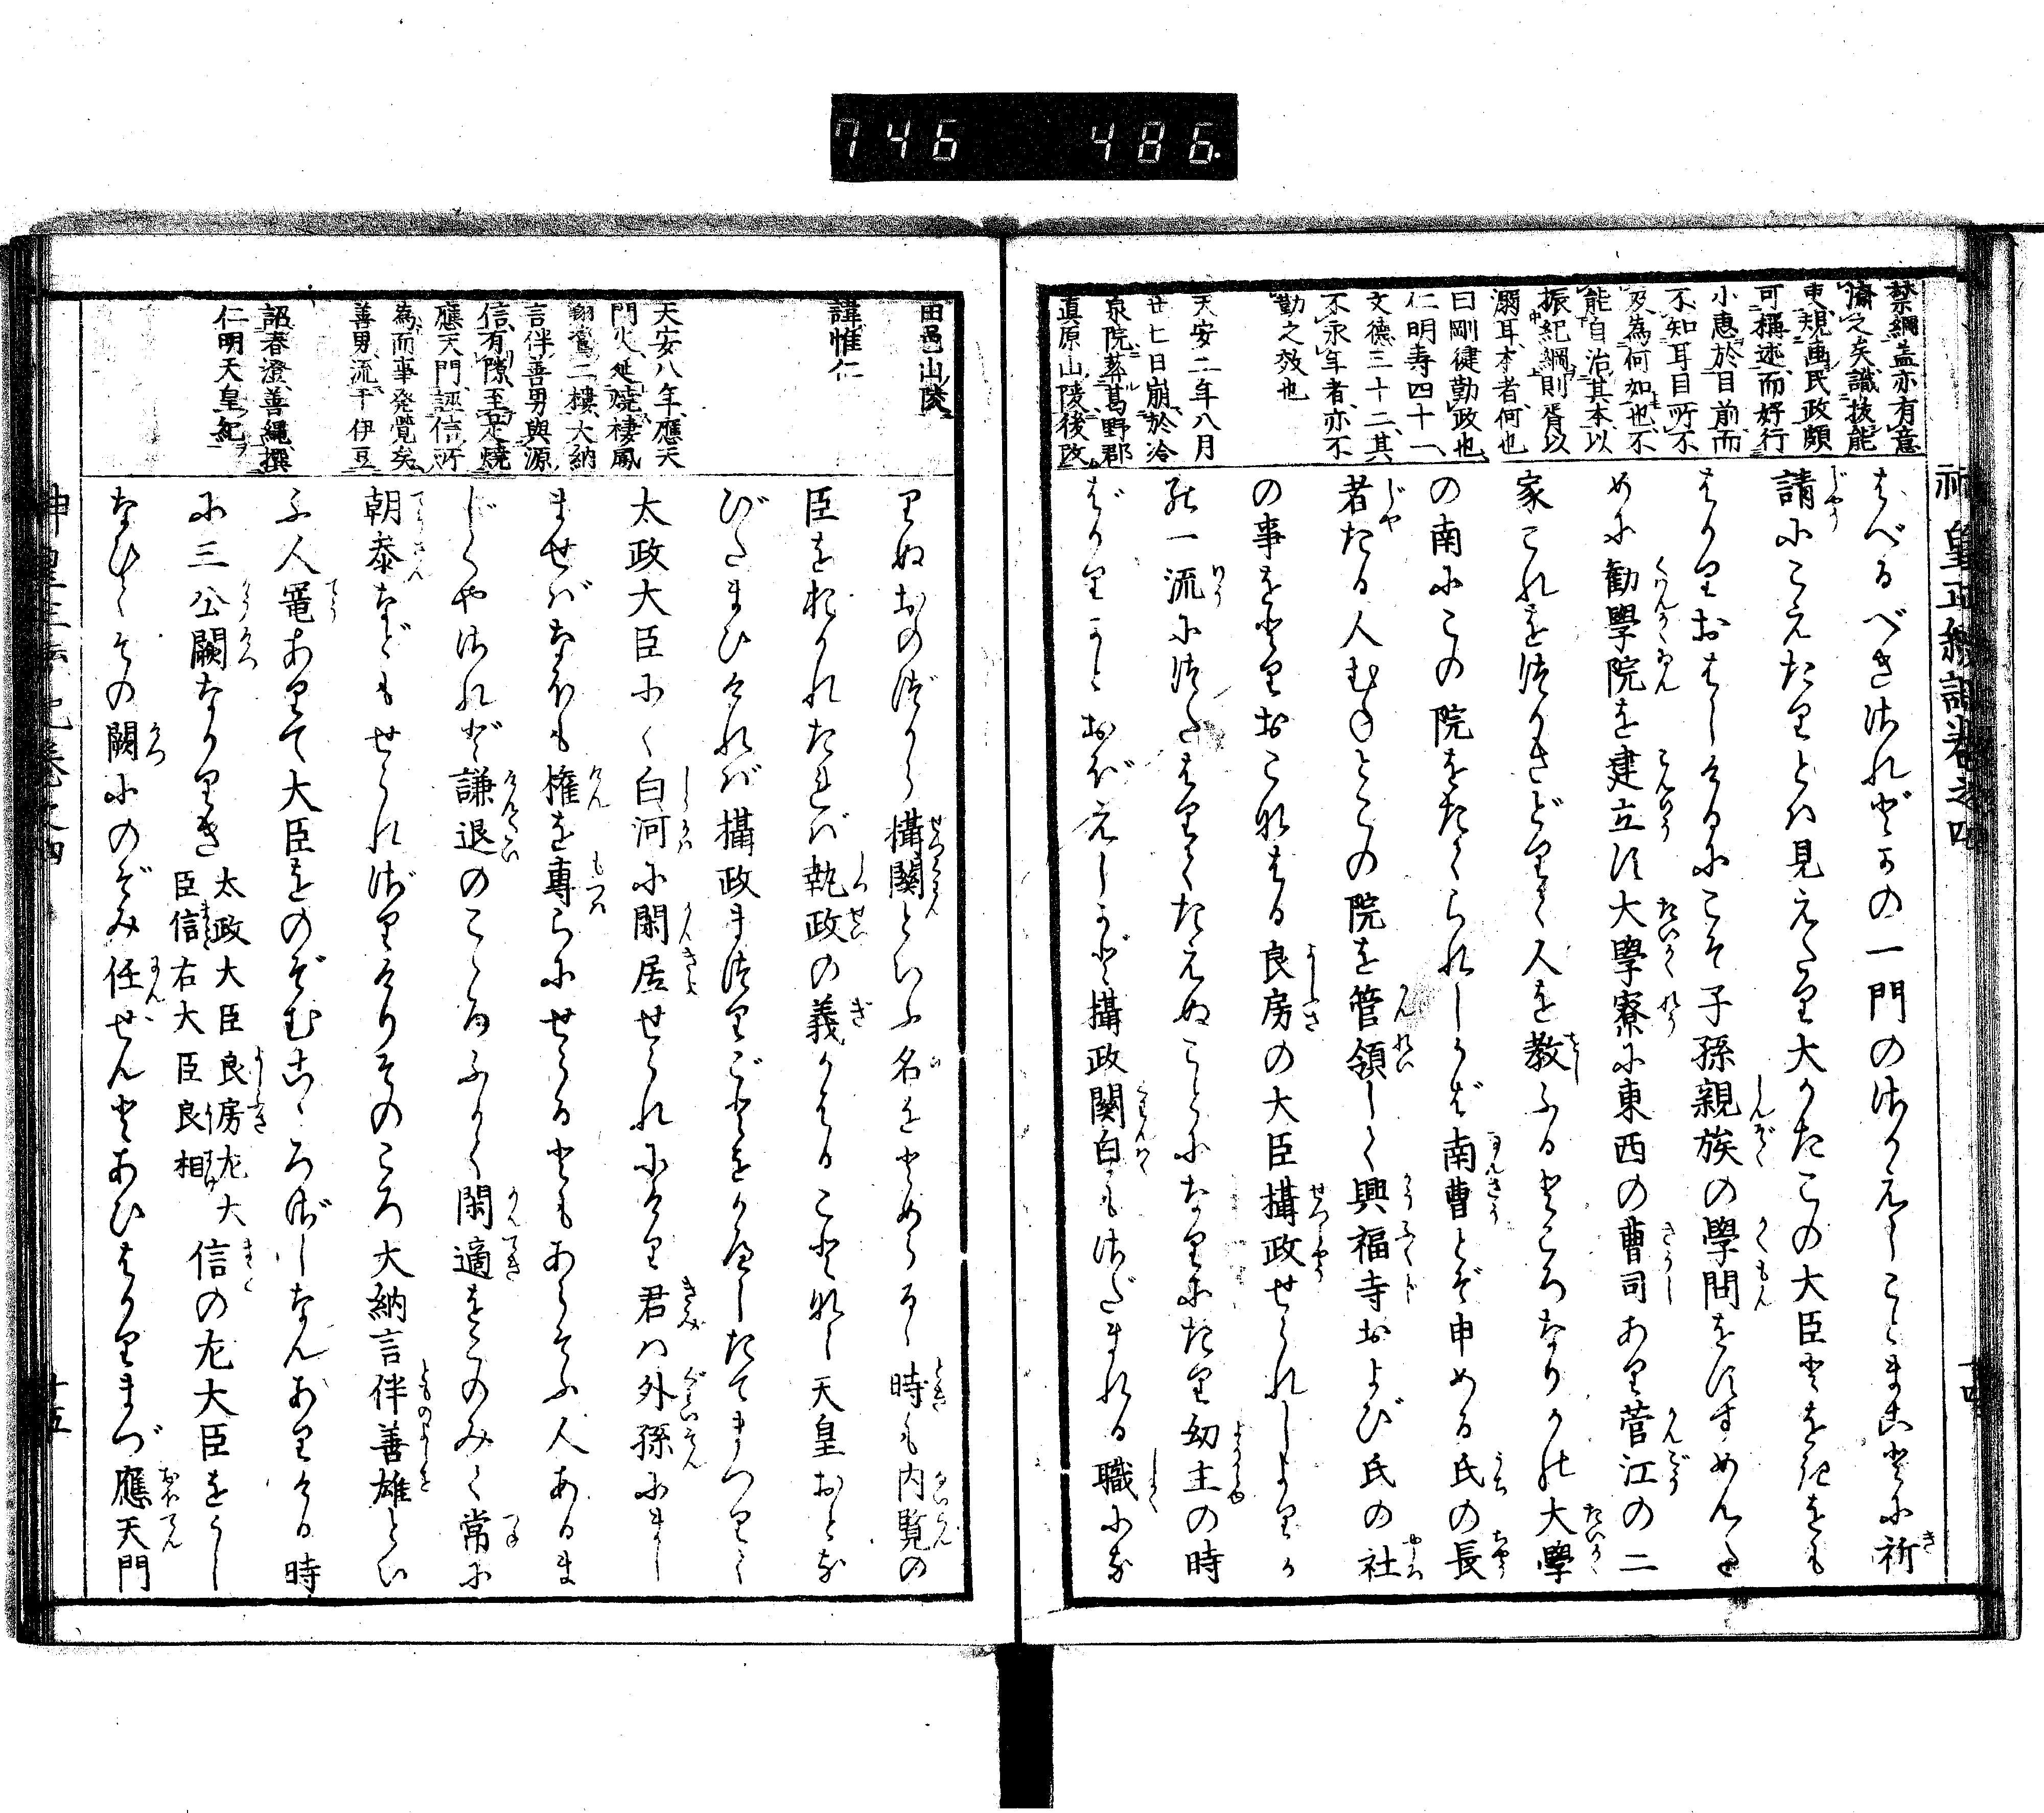 神皇正統記卷之四
禁綱盖亦有意
濟之矣識技能
吏規画民政頗
可稱述而好行
小惠於目前而
不知耳目所不
及為何如也不
能自治其本以
振紀綱則胥以
溺耳本者何也
曰剛健勤政也
仁明寿四十一
文德三十二其
不永年者亦不
勤之效也
天安二年八月
廿七日崩於冷
泉院葬葛野郡
直原山陵後改
はべるべきされどかの一門のさかえしことまことに祈
請にこえたりとは見えたり大かたこの大臣とをきをも
はかりおはしけるにこそ子孫親族の學問をすすめんた
めに勸學院を建立す大學寮に東西の曹司あり菅江の二
家これをつかさどりて人を教ふるところなりかの大學
の南にこの院をたてられしかば南曹とぞ申める氏の長
者たる人むねとこの院を管領して興福寺および氏の社
の事をとりおこなはる良房の大臣攝政せられしよりか
の一流につたはりてたえぬことになりにたり幼主の時
ばかりかとおぼえしかど攝政關白もさだまれる職にな
十四
田邑山陵
諱惟仁
天安八年應天
門火延燒棲鳳
翔鸞二樓大納
言伴善男與源
信有隙至是燒
應天門誣信所
為而事発覺矣
善男流于伊豆
詔春澄善繩撰
仁明天皇紀
りぬおのづから攝關といふ名をとめらるゝ時も内覽の
臣をおかれたれば執政の義かはることなし天皇おとな
びたまひければ攝政まつりごとをかへしたてまつりて
太政大臣にて白河に閑居せられにけり君は外孫にまし
ませばなほも權を專らにせらるともあらそふ人あるま
じくやされど謙退のこゝろふかく閑適をこのみて常に
朝參などもせられざりけりそのころ大納言伴善雄とい
ふ人寵ありて大臣をのぞむこゝろざしなんありける時
に三公闕なかりき 太政大臣良房左大臣信右大臣良相 信の左大臣をうし
なひてその闕にのぞみ任ぜんとあひはかりまづ應天門
神皇正統記卷之四
十五
746 486.